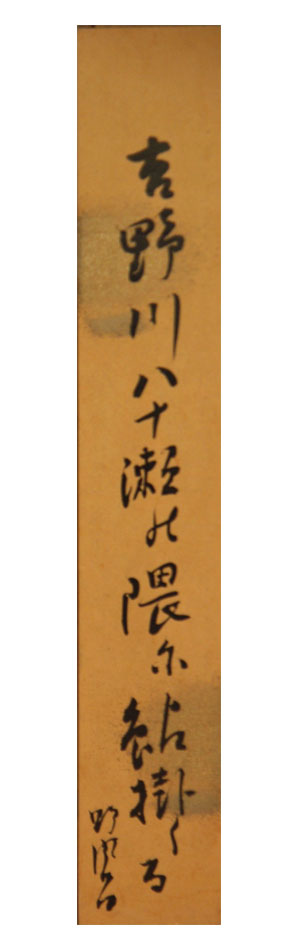 吉野川八十瀬の隈尓鮎掛くる
野風呂